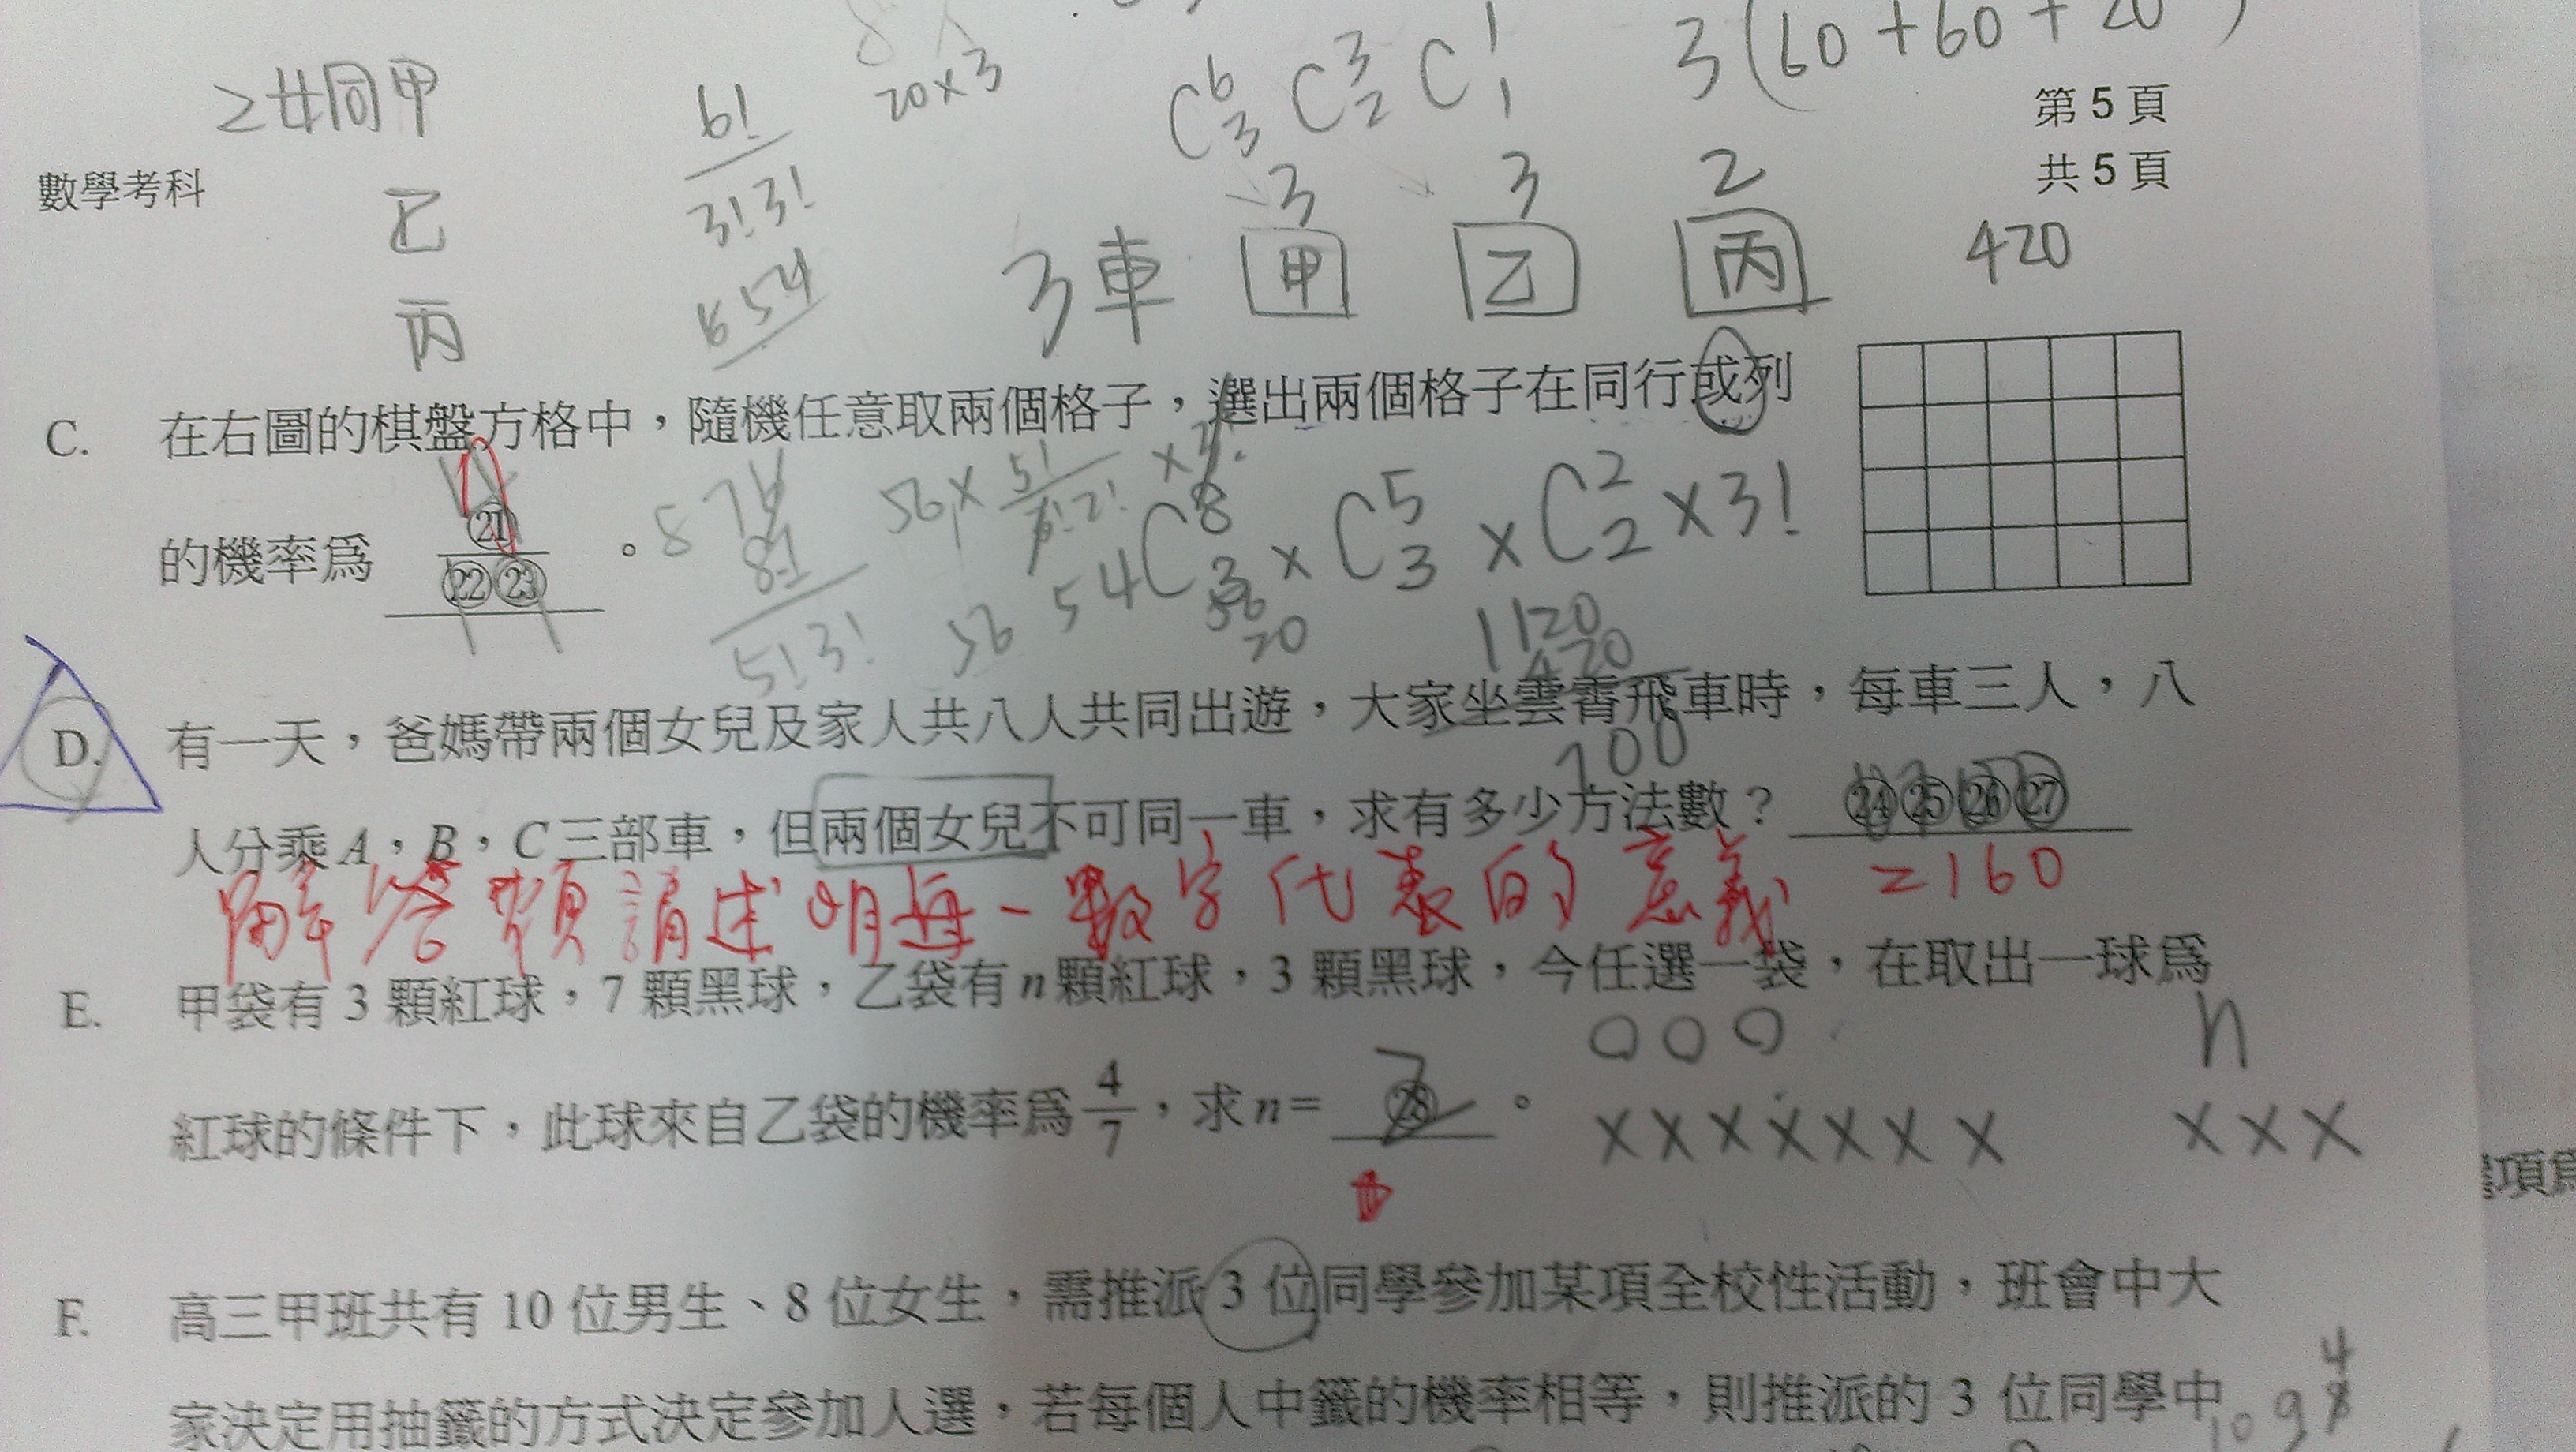 3(60+60+20)
2女同甲
6!
20×3
C 6 3 C 3 2 C 1 1
第5頁
數學考科
乙
3!3!
3 3 2
共5頁
丙
6 5 4
3車 甲 乙 丙
420
C. 在右圖的棋盤方格中,隨機任意取兩個格子,選出兩個格子在同行或列
的機率爲 ㉑
㉒㉓ 。
8 7 6
8!
5!3!
56× 5!
C 8 3 × C 5 3 × C 2 2 ×3!
56
54
56
20
1120
420
700
D. 有一天,爸媽帶兩個女兒及家人共八人共同出遊,大家坐雲霄飛車時,每車三人,八
人分乘A,B,C三部車,但兩個女兒不可同一車,求有多少方法數? ㉔㉕㉖㉗
解答類請述明每一數字代表的意義 =160
E. 甲袋有3顆紅球,7顆黑球,乙袋有n顆紅球,3顆黑球,今任選一袋,在取出一球爲
○○○ n
紅球的條件下,此球來自乙袋的機率爲 4/7,求n= ㉘ 。
××××××× ×××
項爲
F. 高三甲班共有10位男生、8位女生,需推派3位同學參加某項全校性活動,班會中大
家決定用抽籤的方式決定參加人選,若每個人中籤的機率相等,則推派的3位同學中
10 9 8
4